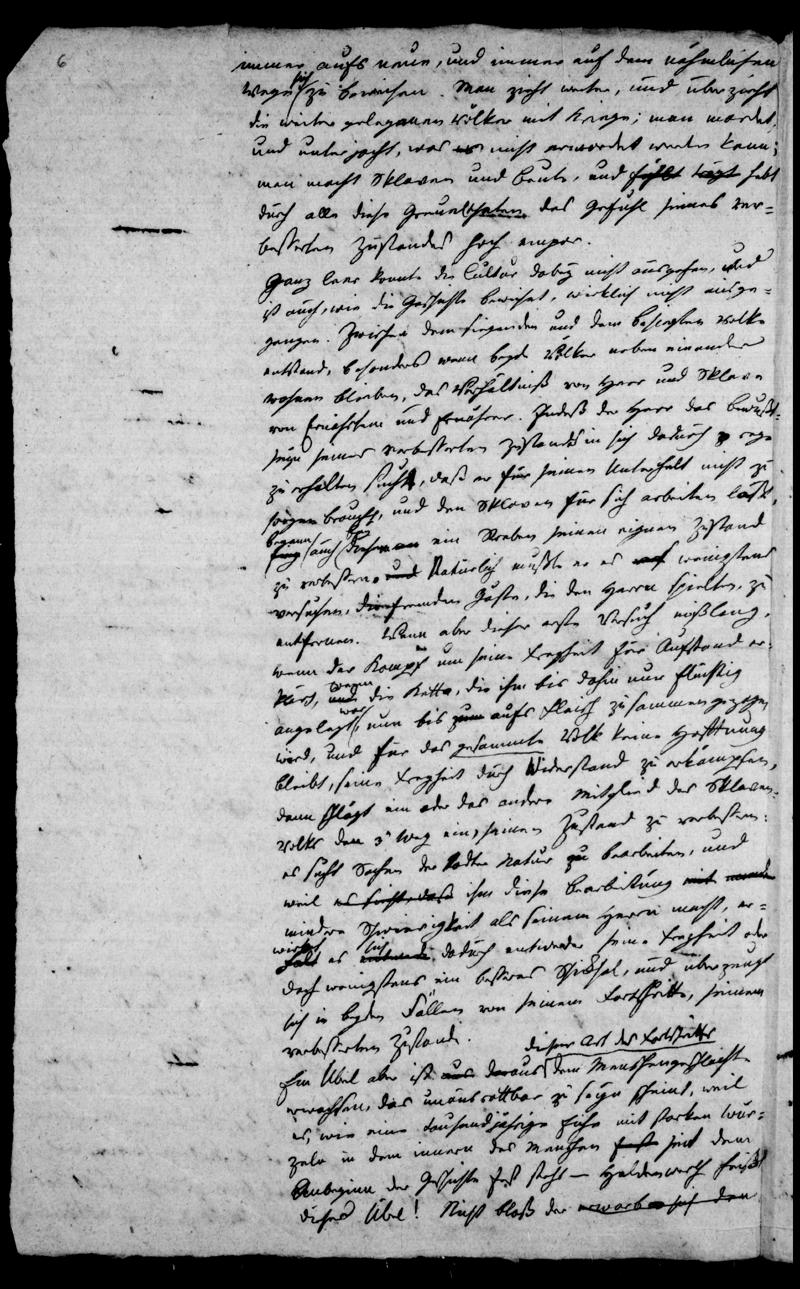 6
immer aufs neue, und immer auf dem nähmlichen
Wege sich zu beweisen. Man zieht weiter, und überzieht
die weiter gelegenen Völker mit Kriege; man mordet,
und unterjocht, was es nicht ermordet werden kann;
man macht Sklaven und Beute, und fühlt trägt hebt
durch alle diese Greuelthaten das Gefühl seines ver=
besserten Zustandes hoch empor.
Ganz leer konnte die Cultur dabey nicht ausgehen, und
ist auch, wie die Geschichte beweiset, wirklich nicht ausge=
gangen. Zwischen dem siegenden und dem besiegten Volke
entstand, besonders wenn beyde Völker neben einander
wohnen blieben, das Verhältniß von Herr und Sklave
von Ernährtem und Ernährer. Indeß der Herr das Bewußt=
seyn seines verbesserten Zustandes in sich dadurch rege
zu erhalten sucht, daß er für seinen Unterhalt nicht zu
sorgen braucht, und den Sklaven für sich arbeiten läßt,
begann auch ein Streben seinen eignen Zustand
zu verbessern. und Natürlich mußte er es wenigstens
versuchen, die fremden Gäste, die den Herrn spielten, zu
entfernen. Wenn aber dieser erste Versuch mißlang,
wenn der Kampf um seine Freyheit für Aufstand er=
klärt, und wenn die Kette, die ihm bis dahin nur flüchtig
angelegt war, nun bis zum aufs Fleisch zusammengezogen
wird, und für das gesammte Volk keine Hoffnung
bleibt, seine Freyheit durch Widerstand zu erkämpfen,
dann schlägt ein oder das andere Mitglied des Sklaven=
volks den 3ten Weg ein, seinen Zustand zu verbessern:
es sucht Sachen der todten Natur zu bearbeiten, und
weil ihm diese Bearbeitung
mindere Schwierigkeit als seinem Herrn macht, er=
wirbt es sich dadurch entweder seine Freyheit oder
doch wenigstens ein besseres Schicksal, und überzeugt
sich in beyden Fällen von seinem Fortschritte, seinem
verbesserten Zustande.
dieser Art des Fortschritts
Ein Übel aber ist aus daraus dem Menschengeschlechte
erwachsen, das unausrottbar zu seyn scheint, weil
es, wie eine tausendjährige Eiche mit starken Wur=
zeln in dem innern des Menschen fest seit dem
Anbeginn der Geschichte fest steht –
dieses Übel! Nicht bloß der erwarb sich den